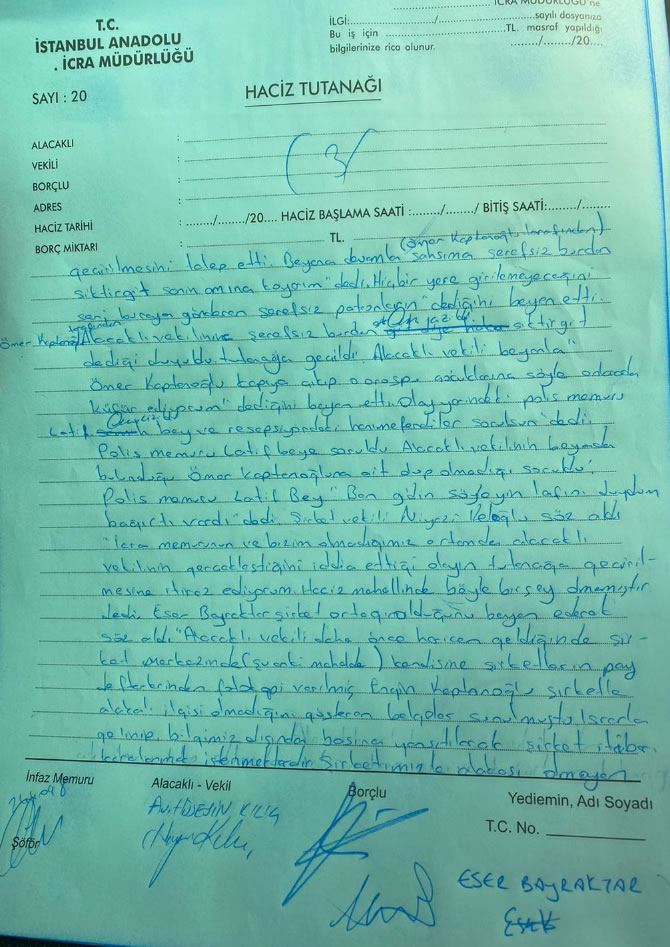 İCRA MÜDÜRLÜĞÜ'ne
İLGİ:............../..............sayılı dosyanıza
Bu iş için ..............TL. masraf yapıldığı
bilgilerinize rica olunur. ....../....../20....
T.C.
İSTANBUL ANADOLU
. İCRA MÜDÜRLÜĞÜ
SAYI : 20
HACİZ TUTANAĞI
ALACAKLI :
(3)
VEKİLİ :
BORÇLU :
ADRES :
HACİZ TARİHİ : ......./......./20.... HACİZ BAŞLAMA SAATİ :......./....... BİTİŞ SAATİ:......./.......
BORÇ MİKTARI : TL.
(Ömer Kaptanoğlu tarafından)
geçirilmesini talep etti. Beyana devamla şahsıma şerefsiz burdan
siktirgit senin amına koyarım" dedi. Hiçbir yere girilemeyeceğini
seni buraya gönderen şerefsiz patronların" dediğini beyan etti.
Ömer Kaptanoğlu tarafından Alacaklı vekiline şerefsiz burdan siktirgit
dediği duyuldu. tutanağa geçildi. Alacaklı vekili beyanla"
Ömer Kaptanoğlu kapıya çıkıp o orospu çocuklarına söyle
küfür ediyorum" dediğini beyan etti. Olay yerindeki polis memuru
Latif bey ve resepsiyondaki hanımefendiler sorulsun" dedi.
Polis memuru Latif beye soruldu. Alacaklı vekilinin beyanda
bulunduğu Ömer Kaptanoğluna ait olup olmadığı soruldu.
Polis memuru Latif Bey" Ben gidin söyleyin lafını duydum
bağırtı vardı" dedi. Şirket vekili Niyazi söz aldı
"İcra memurunun ve bizim olmadığımız ortamda alacaklı
vekilinin gerçekleştiğini iddia ettiği olayın tutanağa geçiril-
mesine itiraz ediyorum. Haciz mahallinde böyle birşey olmamıştır
dedi. Eser Bayraktar şirket ortağı olduğunu beyan ederek
söz aldı "Alacaklı vekili daha önce haricen geldiğinde şir-
ket merkezinde (şuanki mahalde) kendisine şirketlerin pay
defterlerinden fotokopi verilmiş Engin Kaptanoğlu şirketle
alakalı ilgisi olmadığını gösteren belgeler sunulmuştu. Israrla
gelinip, bilgimiz dışında basına yansıtılarak şirket itibarı
istenmektedir. Şirketimizle alakası olmayan
İnfaz Memuru
Alacaklı - Vekil
Borçlu
Yediemin, Adı Soyadı
T.C. No.
Av. HÜSEYİN
Şöför
ESER BAYRAKTAR